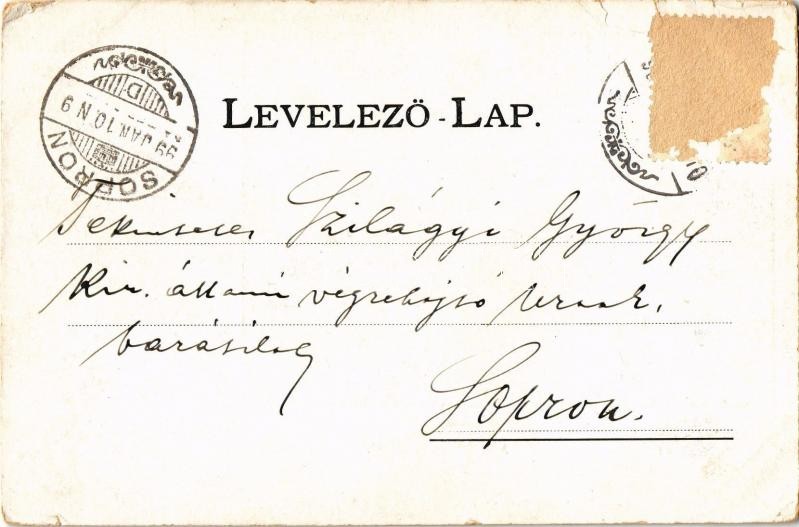 LEVELEZÖ - LAP.
SOPRON
99 JAN. 10. N 9
D
Tekintetes Szilágyi György
Kir. állami végrehajtó Urnak,
barátilag
Sopron.